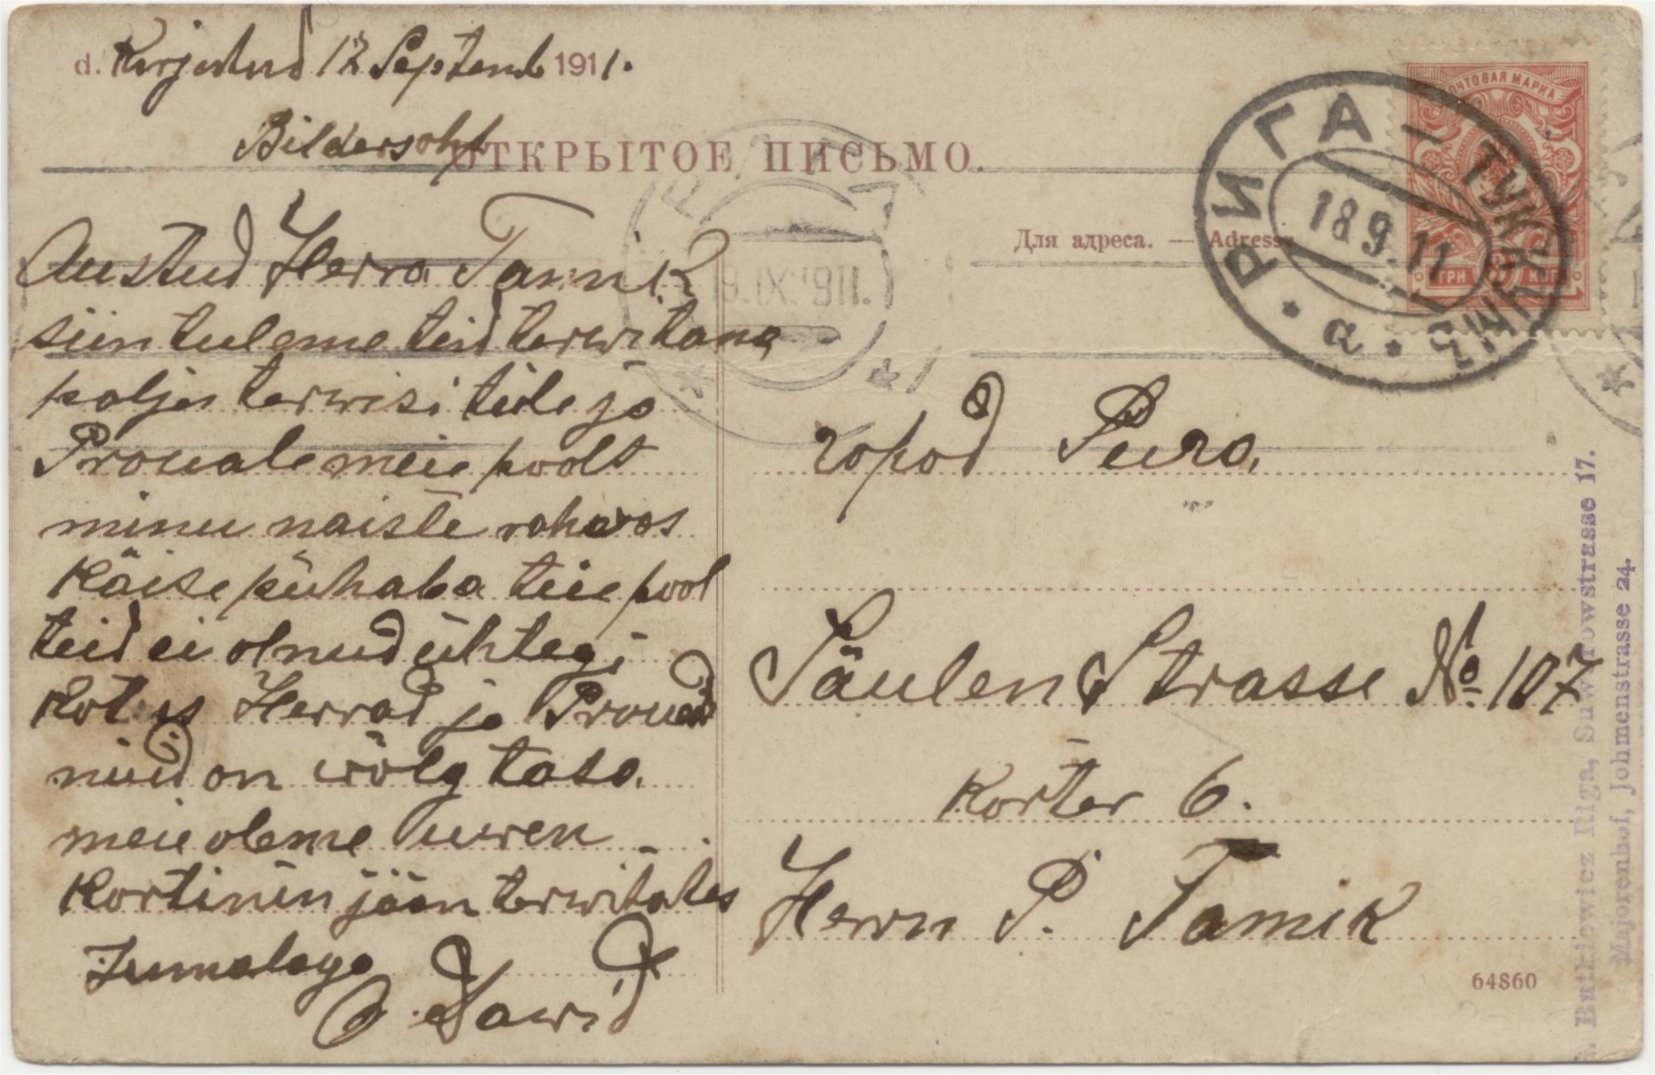 d. Kirjutud 12 Septemb 1911.
Bildersohf
ОТКРЫТОЕ ПИСЬМО.
Для адреса. — Adresse
ПОЧТОВАЯ МАРКА
ТРИ 3 КОП
РИГА - ТУККУМЪ
18 9. 11
* а *
РИГА
19.IX.1911.
Austud Herra Tamik
siin tuleme teid terwitama
palju terwisi teile ja
Prouale meie poolt
minu naiste rahwas
Käise pühaba teie pool
teid ei olnud ühtegi
Kotus Herrad ja Prouad
nüüd on wõlg tasa.
meie oleme
Kortinin jään terwitates
Jumalaga
Dawid
город Рига.
Säulen Strasse No 107
Korter 6.
Herrn P. Tamik
64860
Riga, Suworowstrasse 17.
Majorenhof, Johmenstrasse 24.